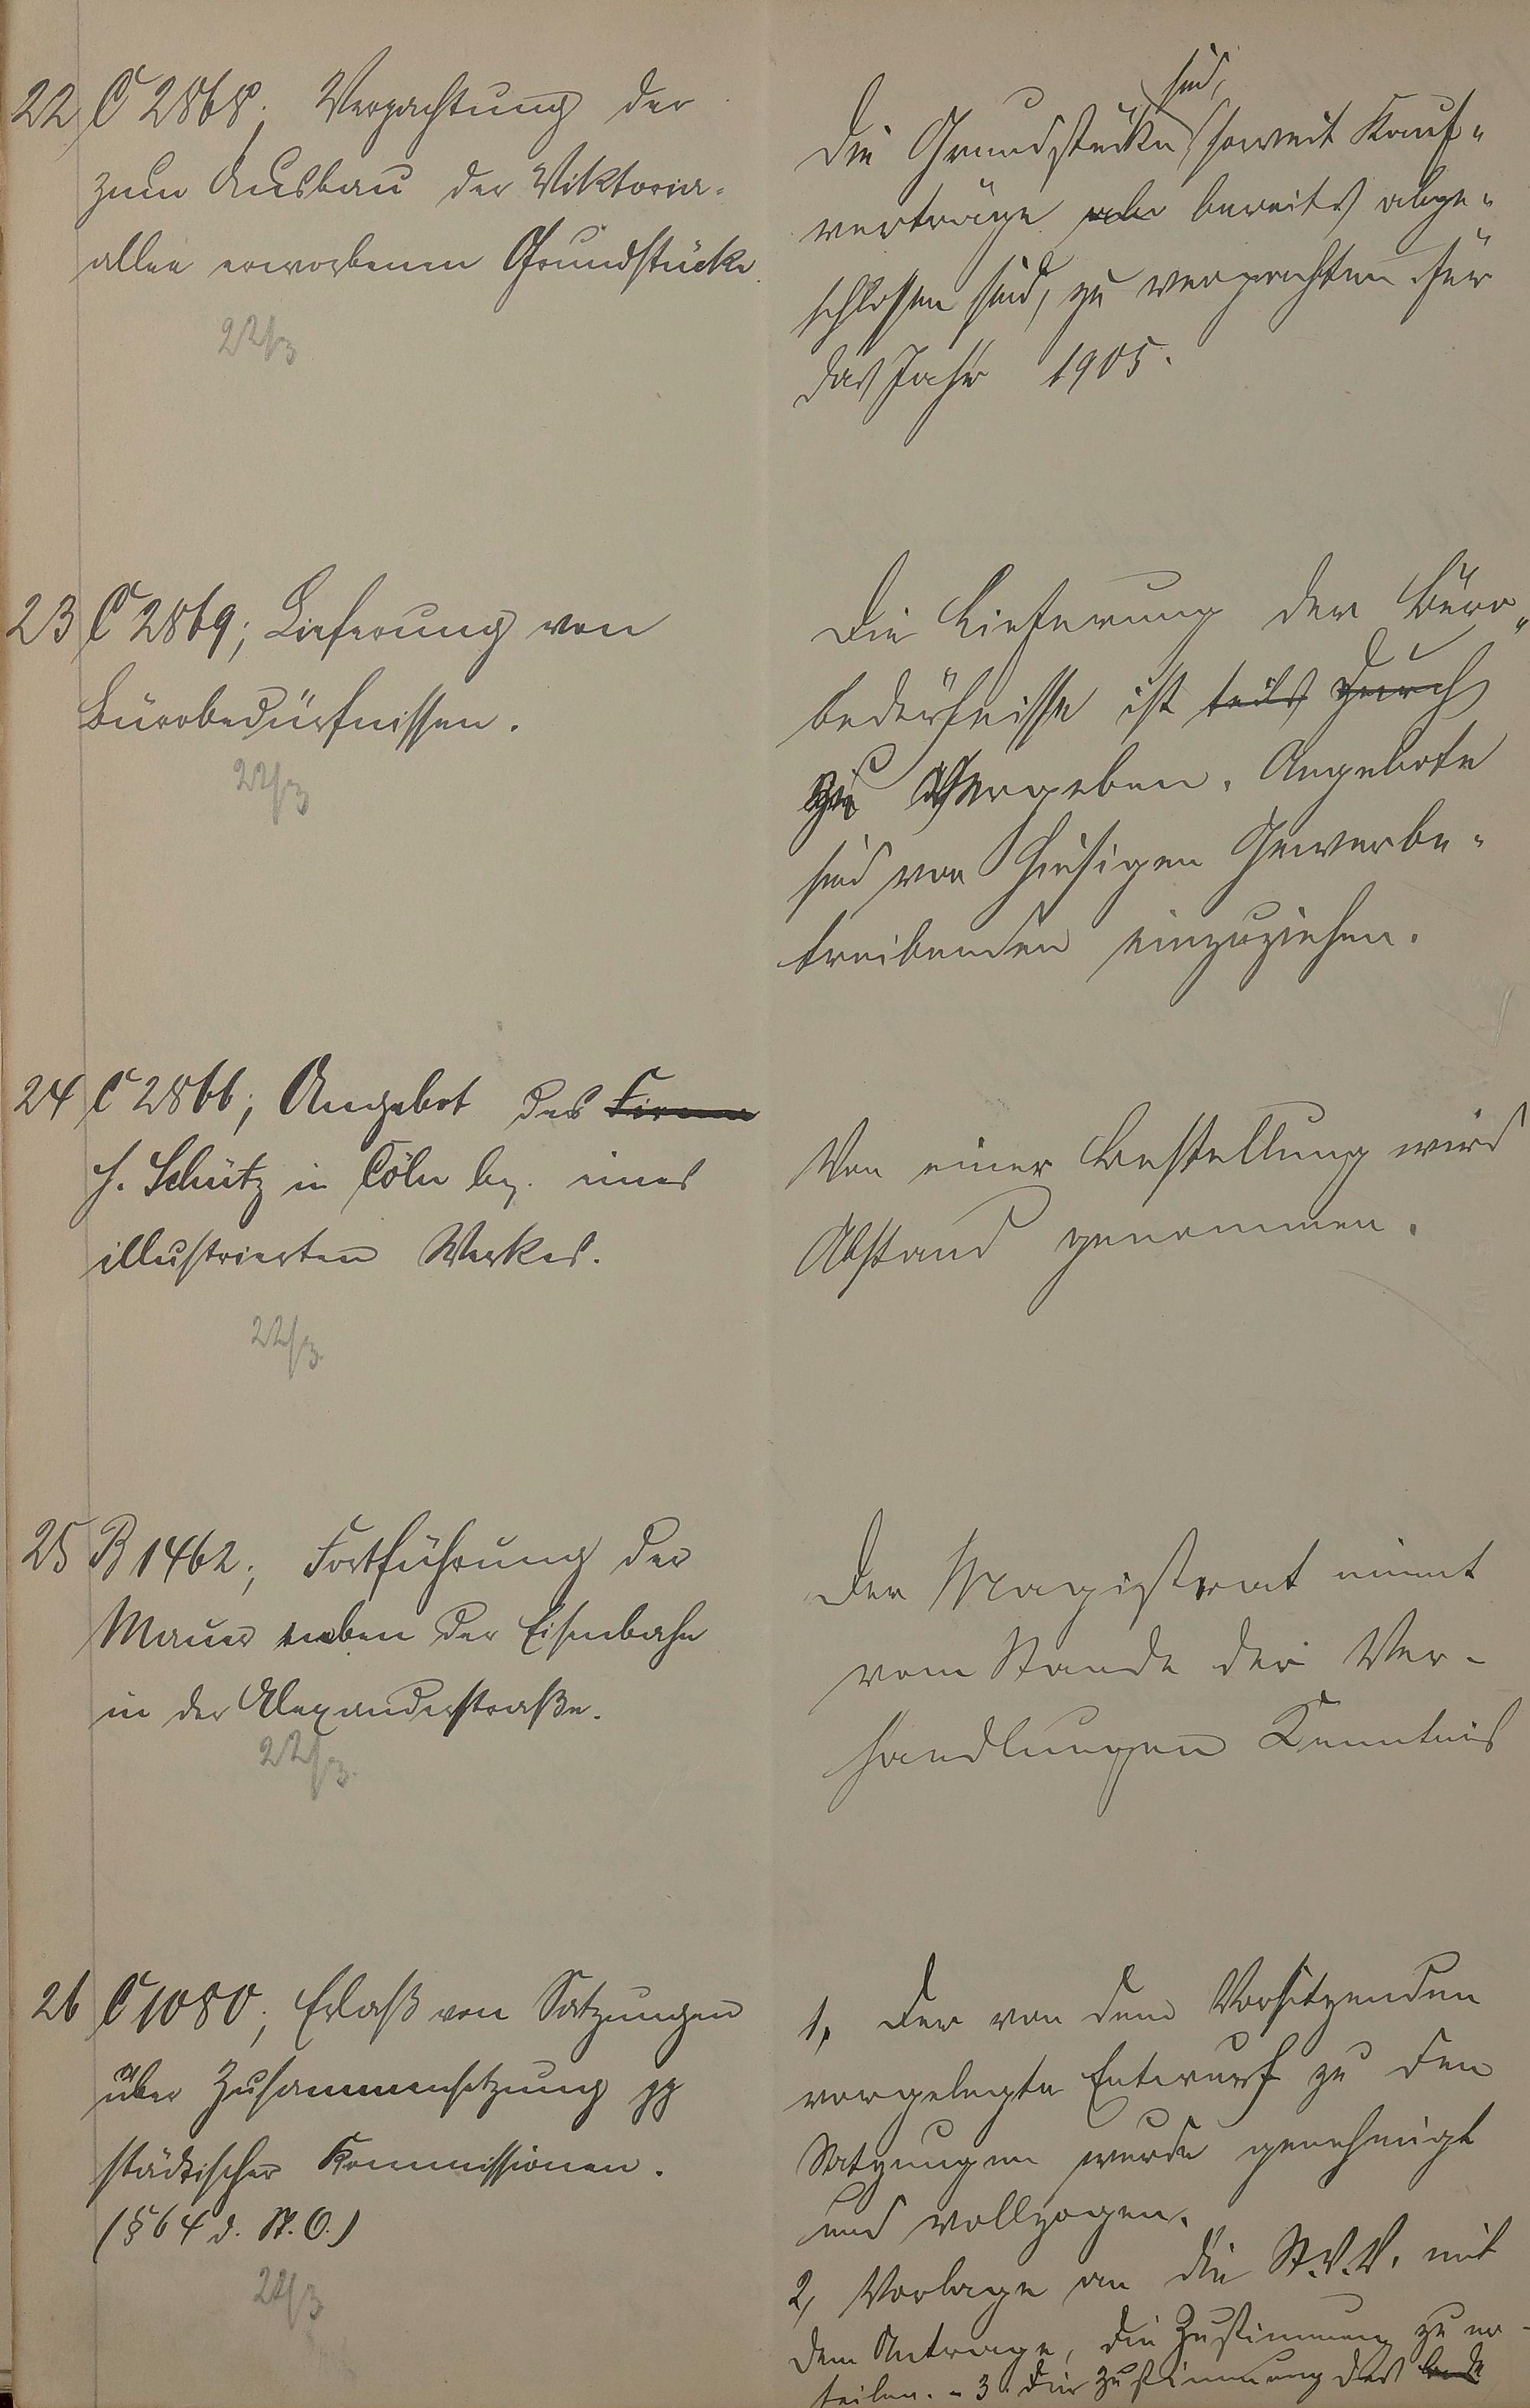 22 C 2868; Verpachtung der
zum Ausbau der Viktoria-
allee erworbenen Grundstücke.
22/3
Die Grundstücke sind, soweit Kauf-
verträge bereits abge-
schlossen sind, zu verpachten für
das Jahr 1905.
23 C 2869; Lieferung von
Bürobedürfnissen.
22/3
Die Lieferung der Büro-
bedürfnisse ist teils durch
zu vergeben. Angebote
sind von hiesigen Gewerbe-
treibenden einzuziehen.
24 C 2866; Angebot des Firma
H. Schütz in Cöln bz. eines
illustrierten Werkes.
22/3.
Von einer Bestellung wird
Abstand genommen.
25 B 1462; Fortführung der
Mauer neben der Eisenbahn
in der Alexanderstraße.
22/3.
Der Magistrat nimmt
vom Stande der Ver-
handlungen Kenntnis
26 C 1080; Erlaß von Satzungen
über Zusammensetzung pp
städtischer Kommissionen.
(§ 64 d. St. O.)
22/3
1, Der von dem Vorsitzenden
vorgelegte Entwurf zu den
Satzungen wurde genehmigt
und vollzogen.
2, Vorlage an die St.V.V. mit
dem Antrage, die Zustimmung zu er-
teilen. - 3. Die Zustimmung des